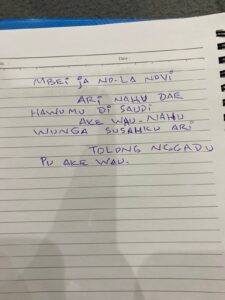 Date :
MBEI ja NO.LA NOVI
ARI NAHU DAE
HAWUMU DI SAUDI
AKE WAU. NAHU
WUNGA SUSAHKU ARI
TOLONG NGGADU
PU AKE WAU.